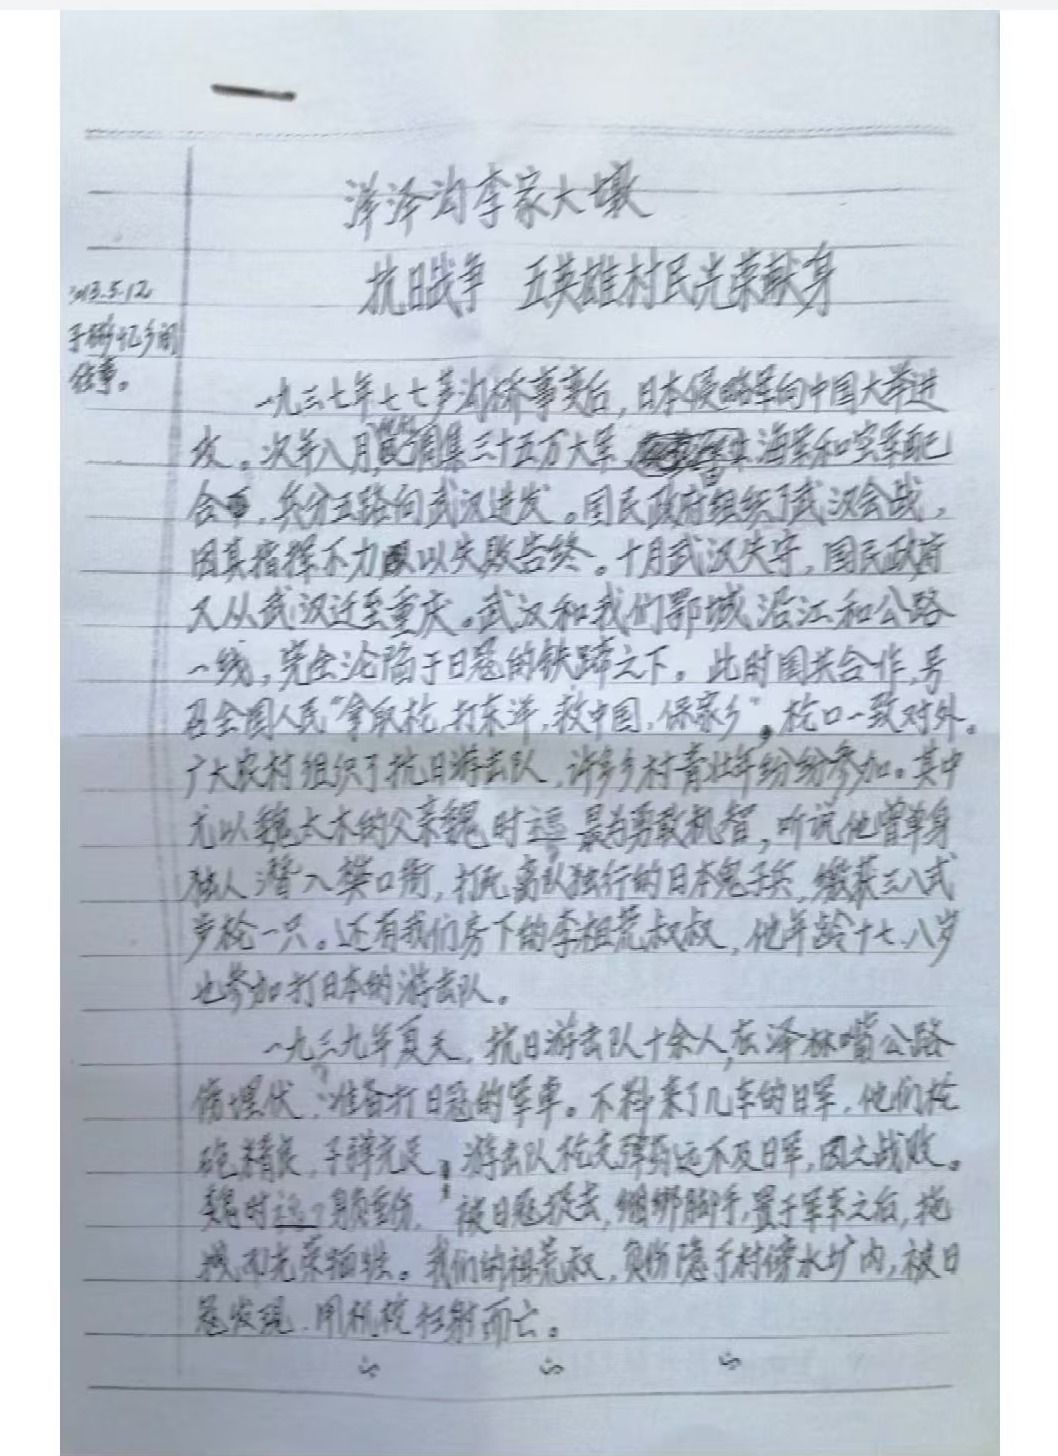 洋泽沟李家大墩
抗日战争 五英雄村民光荣献身
2013.5.12
忆乡间
往事。
一九三七年七七芦沟桥事变后，日本侵略军向中国大举进
攻。次年八月调集三十五万大军，海军和空军配
合，兵分五路向武汉进发。国民政府组织了武汉会战，
因其指挥不力以失败告终。十月武汉失守，国民政府
又从武汉迁至重庆。武汉和我们鄂城沿江和公路
一线，完全沦陷于日冠的铁蹄之下。此时国共合作，号
召全国人民“拿取枪，打东洋，救中国，保家乡”，枪口一致对外。
广大农村组织了抗日游击队，许多乡村青壮年纷纷参加。其中
尤以魏太木的父亲魏时运最为勇敢机智，听说他曾单身
独人潜入樊口街，打死离队独行的日本鬼子兵，缴获三八式
步枪一只。还有我们房下的李祖荒叔叔，他年龄十七、八岁
也参加打日本的游击队。
一九三九年夏天，抗日游击队十余人，在泽林嘴公路
傍埋伏，准备打日冠的军车。不料来了几车的日军，他们枪
砲精良，子弹充足，游击队枪支弹药远不及日军，因之战败。
魏时运身负重伤，被日冠捉去，捆绑脚手，置于军车之后，拖
光荣牺牲。我们的祖荒叔，负伤隐于村傍水圹内，被日
冠发现，用机枪扫射而亡。